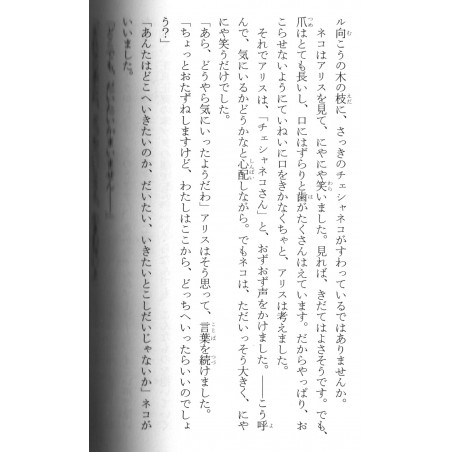 ル向こうの木の枝に、さっきのチェシャネコがすわっているではありませんか。
ネコはアリスを見て、にやにや笑いました。見れば、きだてはよさそうです。でも、
爪はとても長いし、口にはずらりと歯がたくさんはえています。だからやっぱり、お
こらせないようにていねいに口をきかなくちゃと、アリスは考えました。
それでアリスは、「チェシャネコさん」と、おずおず声をかけました。――こう呼
んで、気にいるかどうかなと心配しながら。でもネコは、ただいっそう大きく、にや
にや笑うだけでした。
「あら、どうやら気にいったようだわ」アリスはそう思って、言葉を続けました。
「ちょっとおたずねしますけど、わたしはここから、どっちへいったらいいのでしょ
う？」
「あんたはどこへいきたいのか、だいたい、いきたいとこしだいじゃないか」ネコが
いいました。